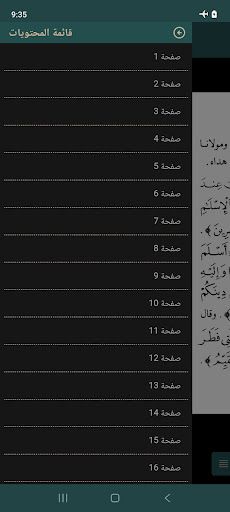 9:35
قائمة المحتويات
صفحة 1
صفحة 2
صفحة 3
صفحة 4
صفحة 5
صفحة 6
صفحة 7
صفحة 8
صفحة 9
صفحة 10
صفحة 11
صفحة 12
صفحة 13
صفحة 14
صفحة 15
صفحة 16
ومولانا
هداه.
عِندَ
الْإِسْلَامِ
أَسْلَمَ
وَإِلَيْهِ
دِينَكُمْ
وقال
فَطَرَ